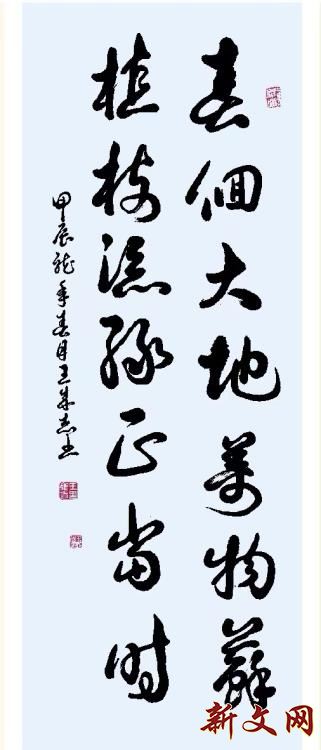 春佪大地萬物蘇
植樹添綠正當時
甲辰龍年春月王志书
新文网